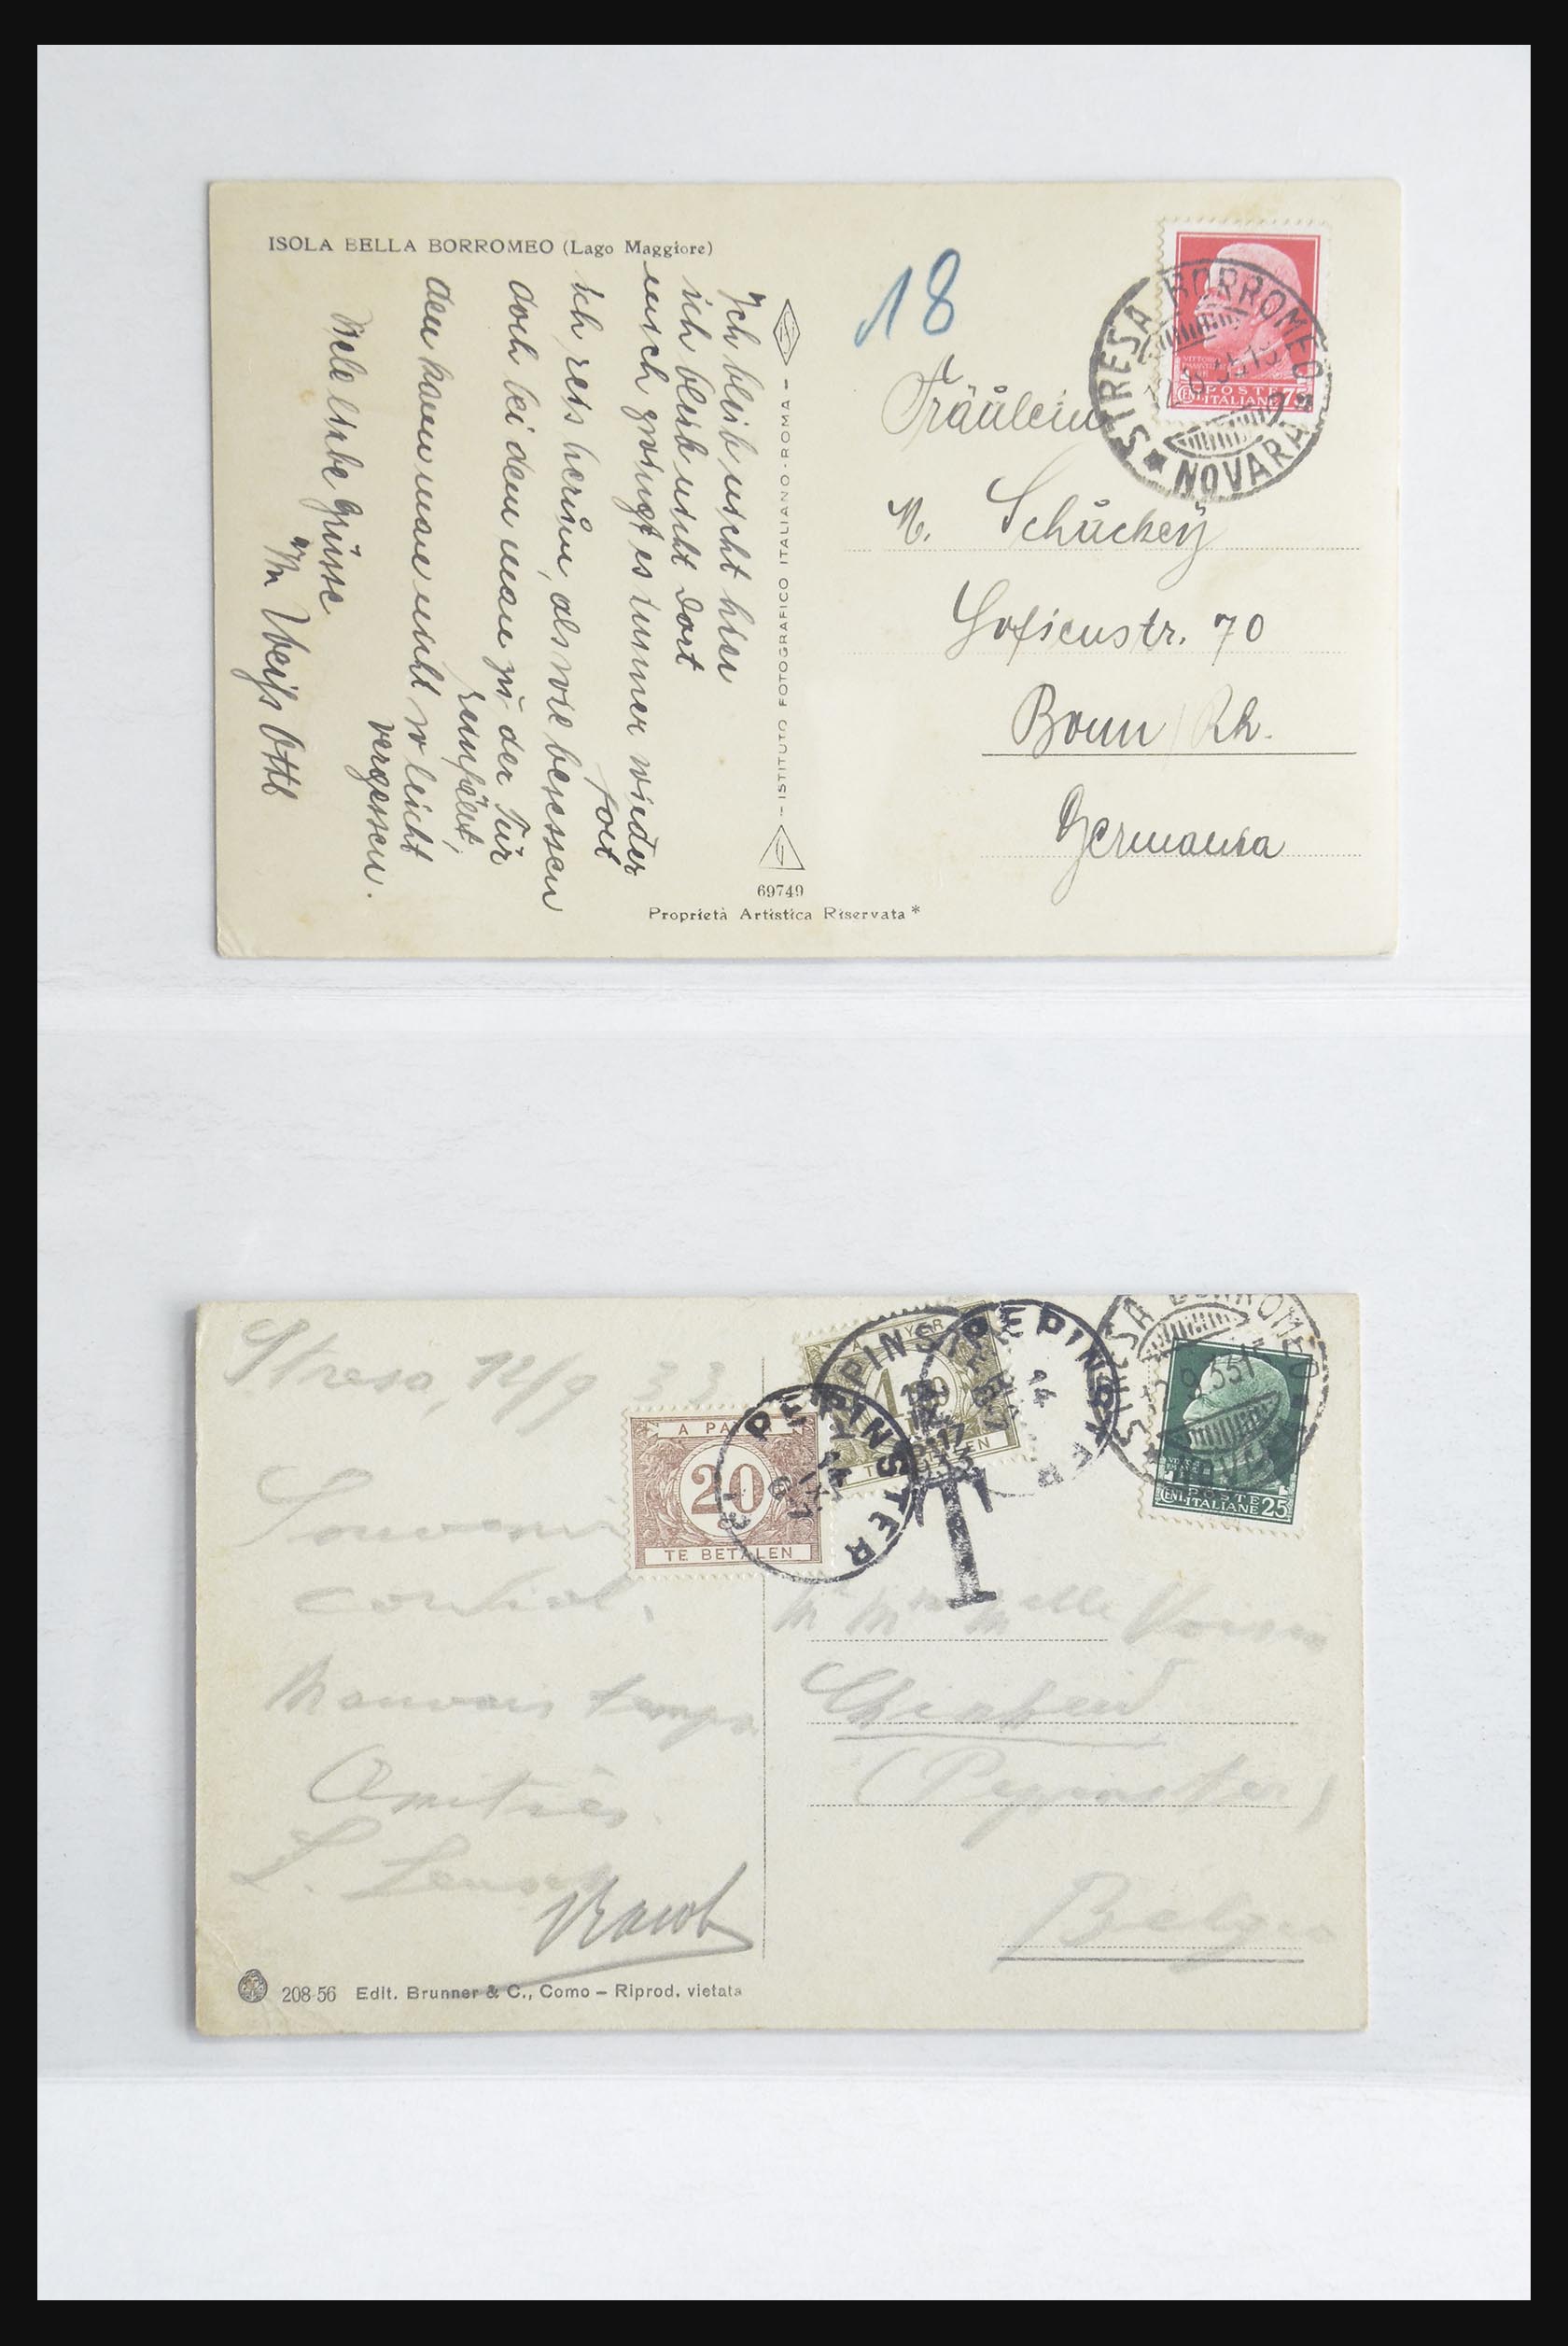 ISOLA BELLA BORROMEO (Lago Maggiore)
18
STRESA BORROMEO
NOVARA
VITTORIO
POSTE
ITALIANE 75
Ich bleib nicht hier
ich bleib nicht dort
mich zwingt es immer wieder
fort
ich reis herum, als wie besessen
doch bei dem man zu der Tür
reinfällt,
den kann man nicht so leicht
vergessen.
Viele liebe Grüsse
Weiss Otto
– ISTITUTO FOTOGRAFICO ITALIANO - ROMA –
69749
Proprietà Artistica Riservata*
Fräulein
M. Schückey
Sofienstr. 70
Bonn / Rh.
Germania
Stresa, 12/9 33
Souvenir
cordial.
Mauvais temps
Amitiés
A PAYER
20
TE BETALEN
PEPINSTER
PEPINSTER
PEPINSTER
T
STRESA BORROMEO
POSTE
ITALIANE 25
Mr Mme Melle
(Pepinster)
Belgio
208-56 Edit. Brunner & C., Como – Riprod. vietata